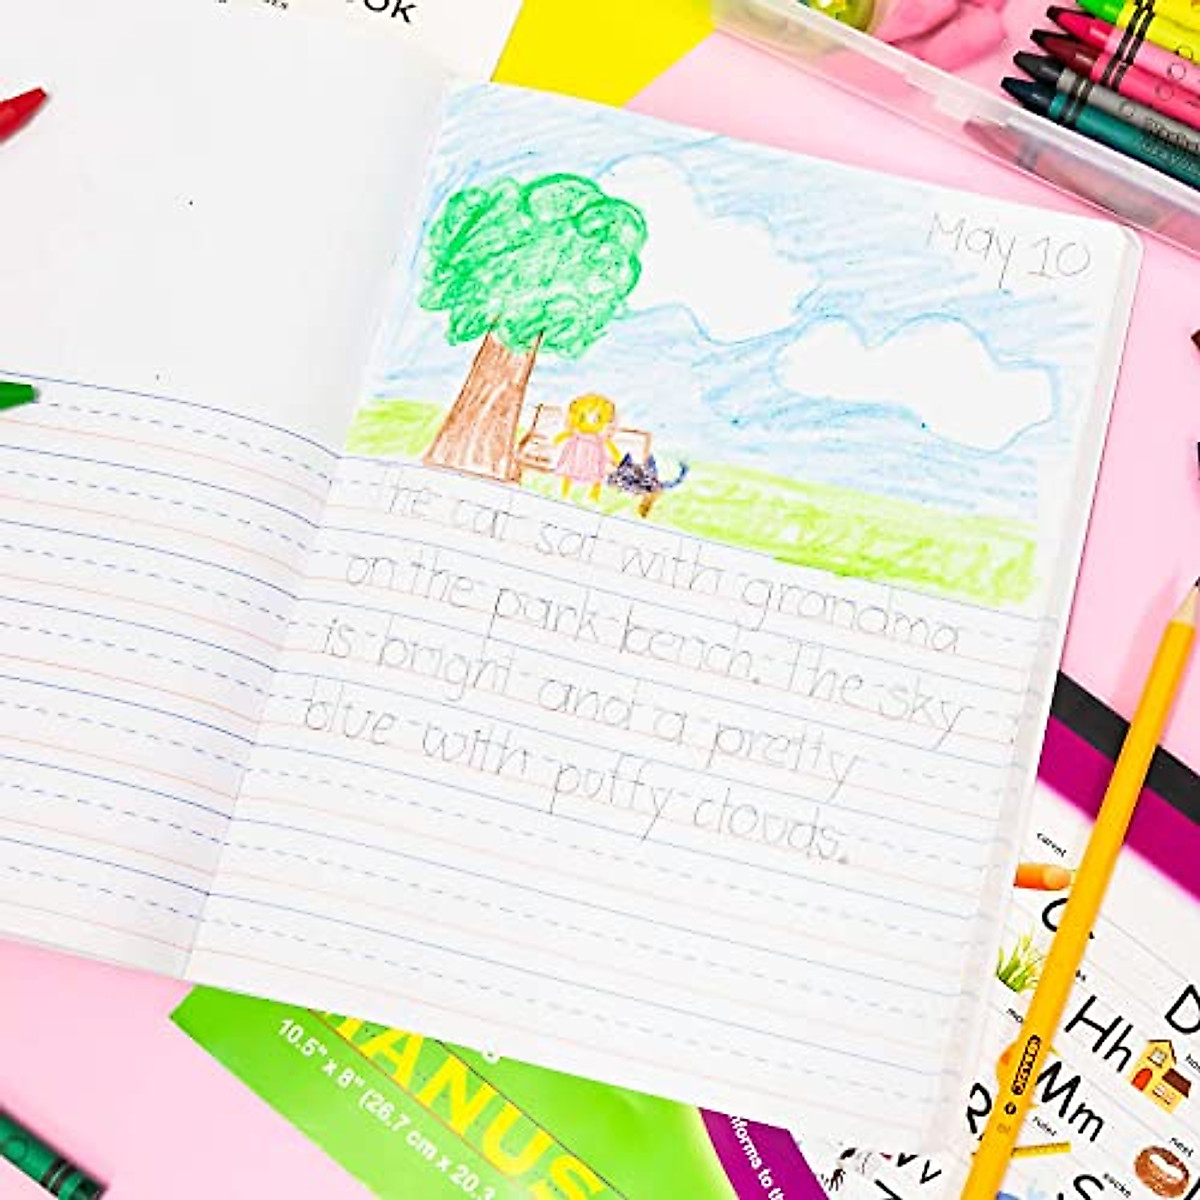 OK
May 10
The cat sat with grandma
on the park bench. The sky
is bright and a pretty
blue with puffy clouds.
carrot
Hh
Mm
rulers
nest
socks
D
S
10.5" x 8" (26.7 cm x 20.3
ANUS